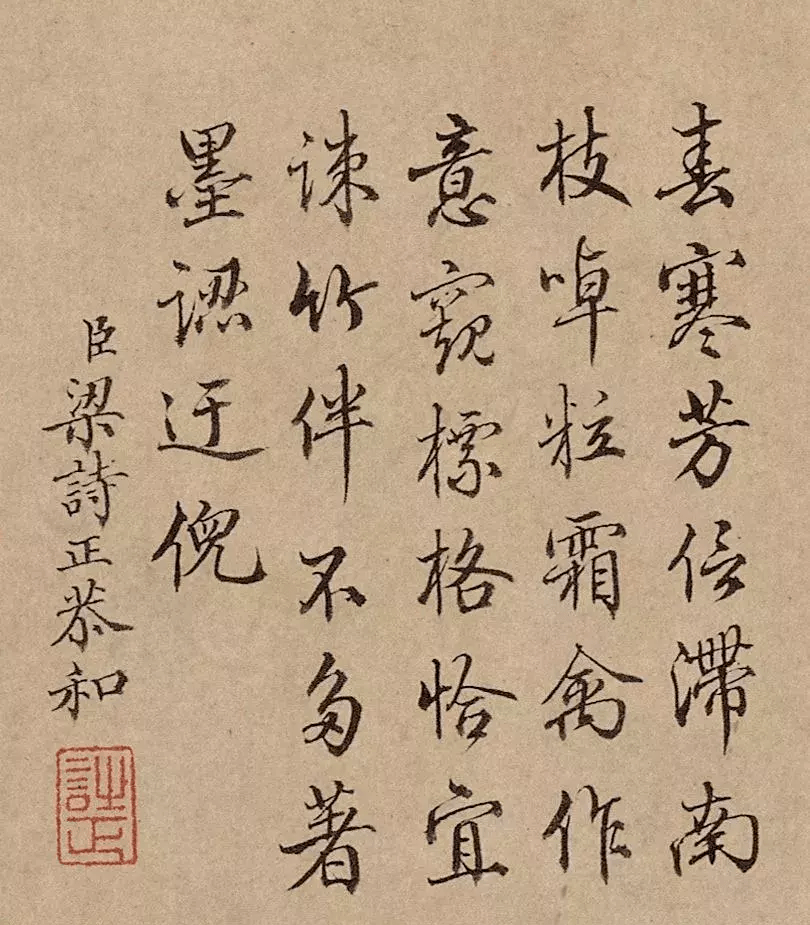 春寒芳信滯南
枝啅粒霜禽作
意窺標格恰宜
疎竹伴不多著
墨認迂倪
臣梁詩正恭和
詩正